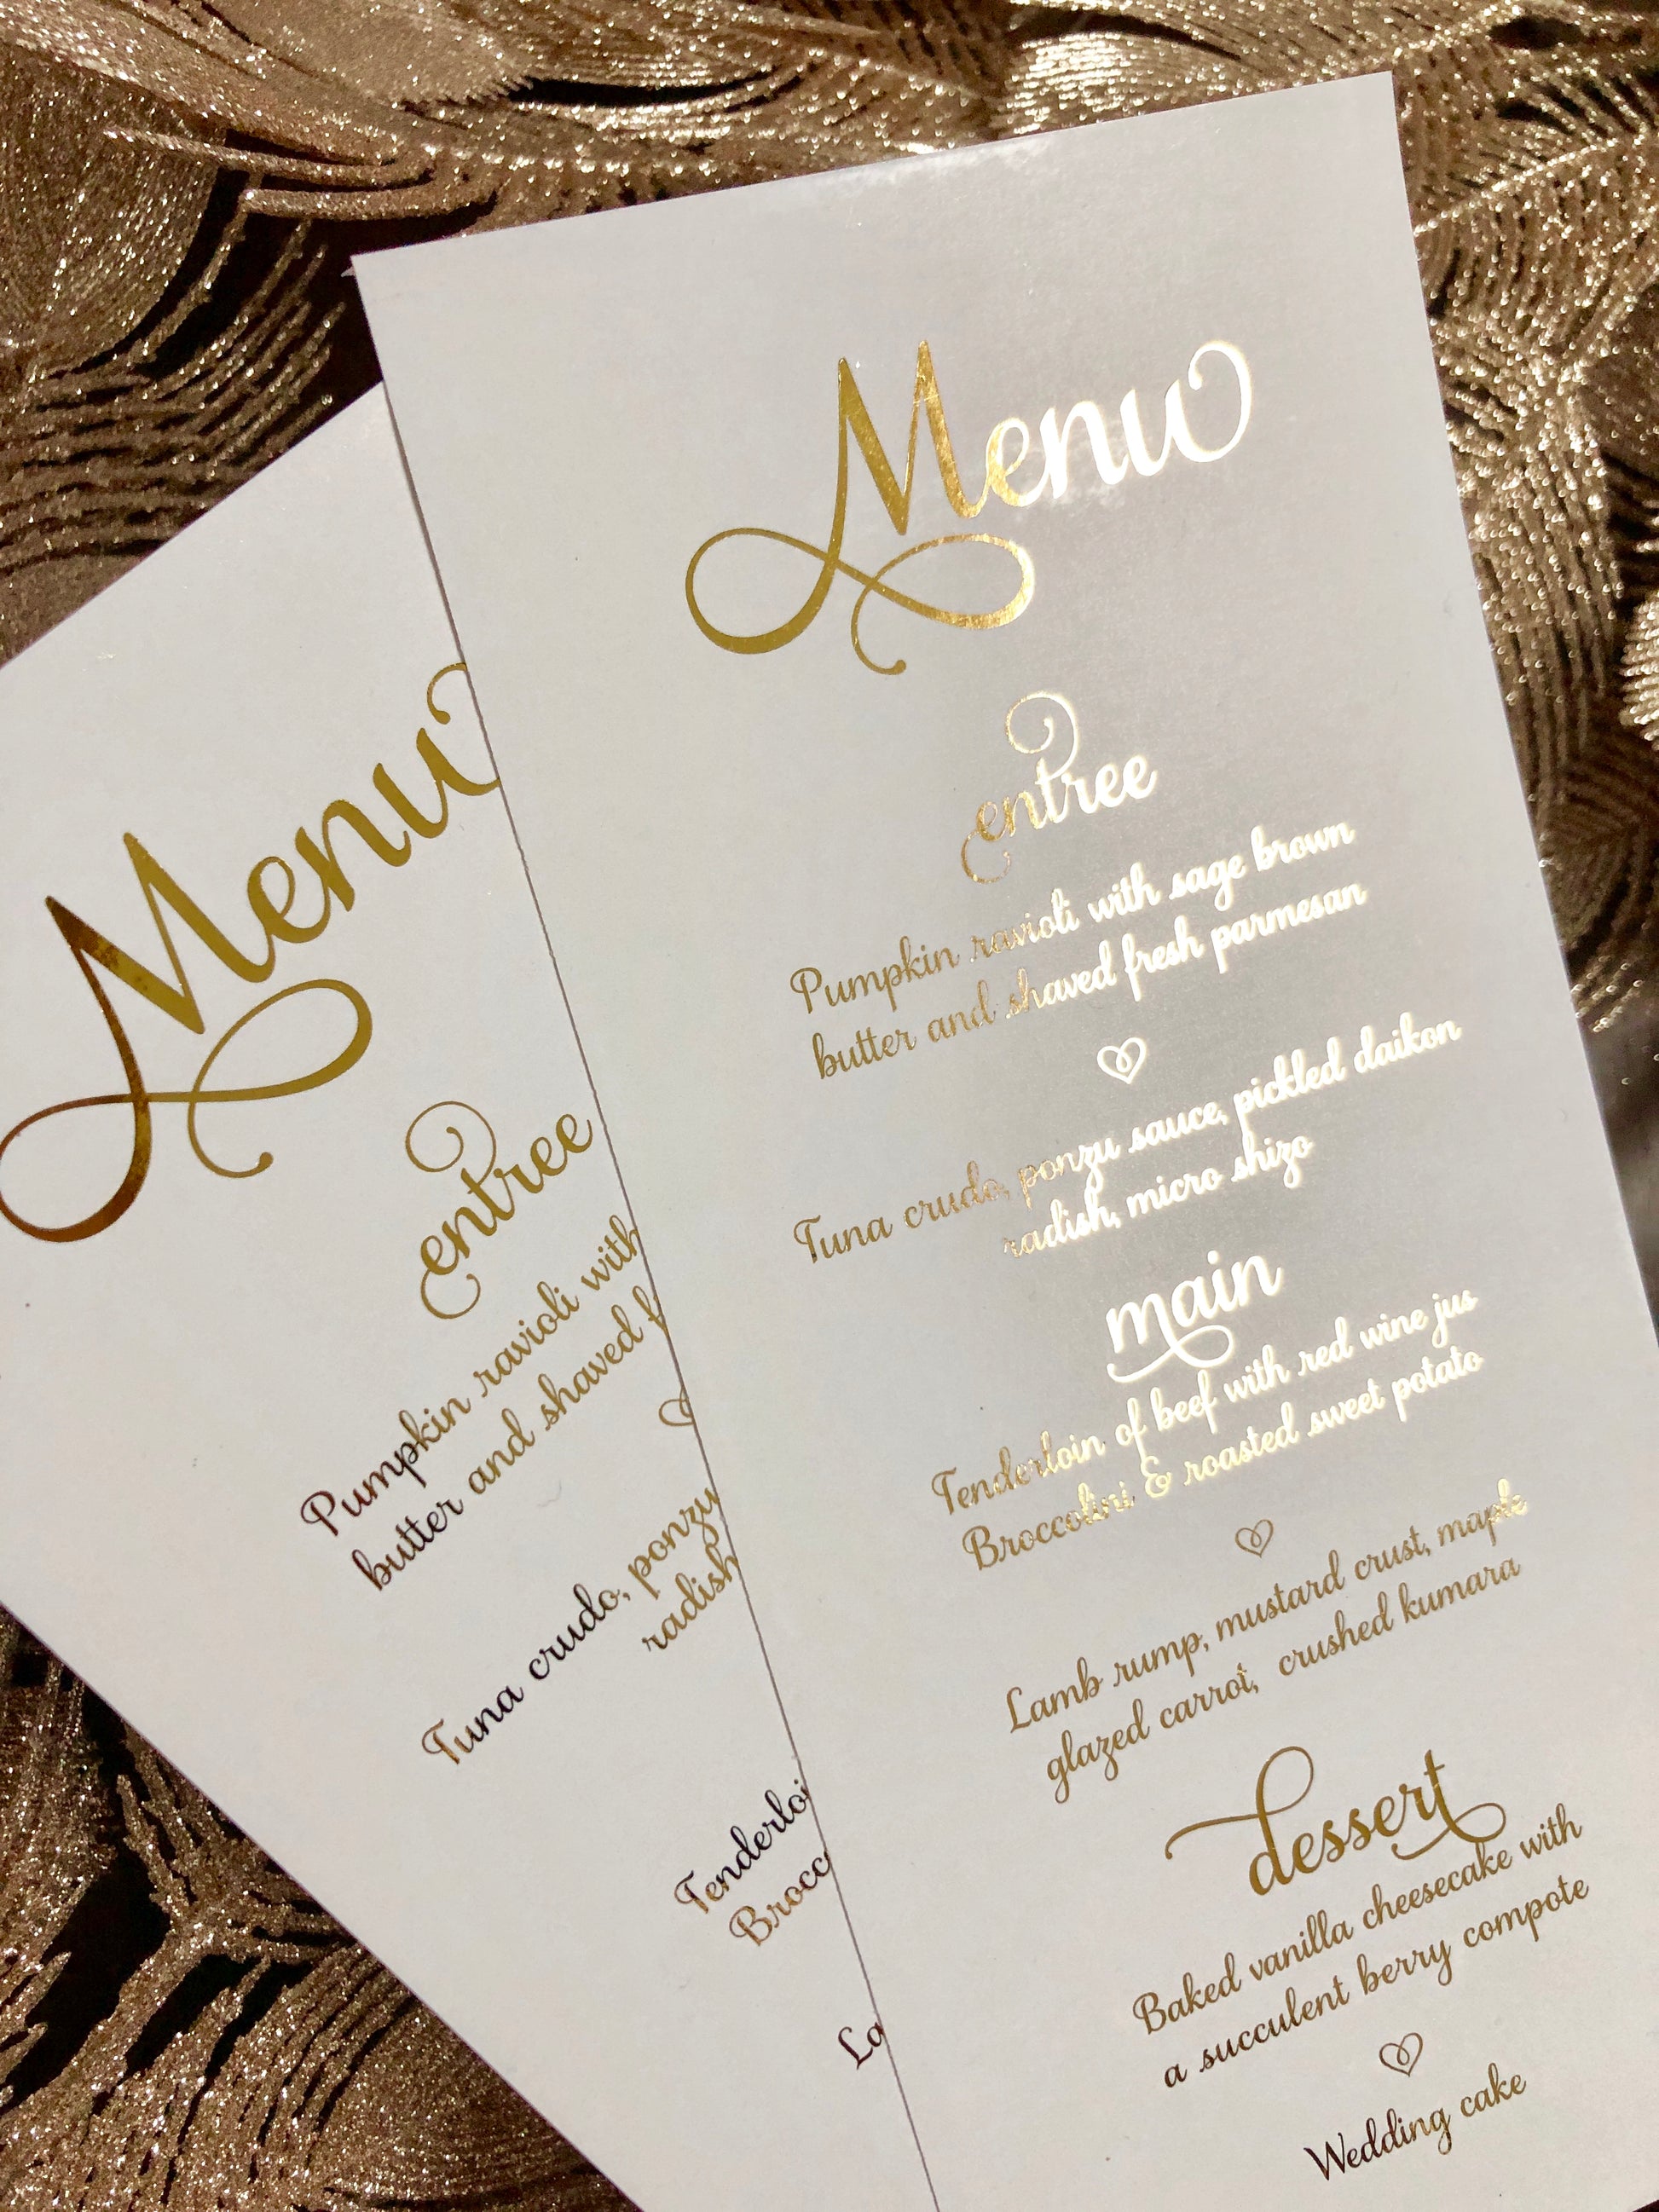 Menu
entree
Pumpkin ravioli with
butter and shaved f
Tuna crudo, ponzu
radish
Tenderloi
Brocc
La
Menu
entree
Pumpkin ravioli with sage brown
butter and shaved fresh parmesan
Tuna crudo, ponzu sauce, pickled daikon
radish, micro shizo
main
Tenderloin of beef with red wine jus
Broccolini & roasted sweet potato
Lamb rump, mustard crust, maple
glazed carrot, crushed kumara
dessert
Baked vanilla cheesecake with
a succulent berry compote
Wedding cake